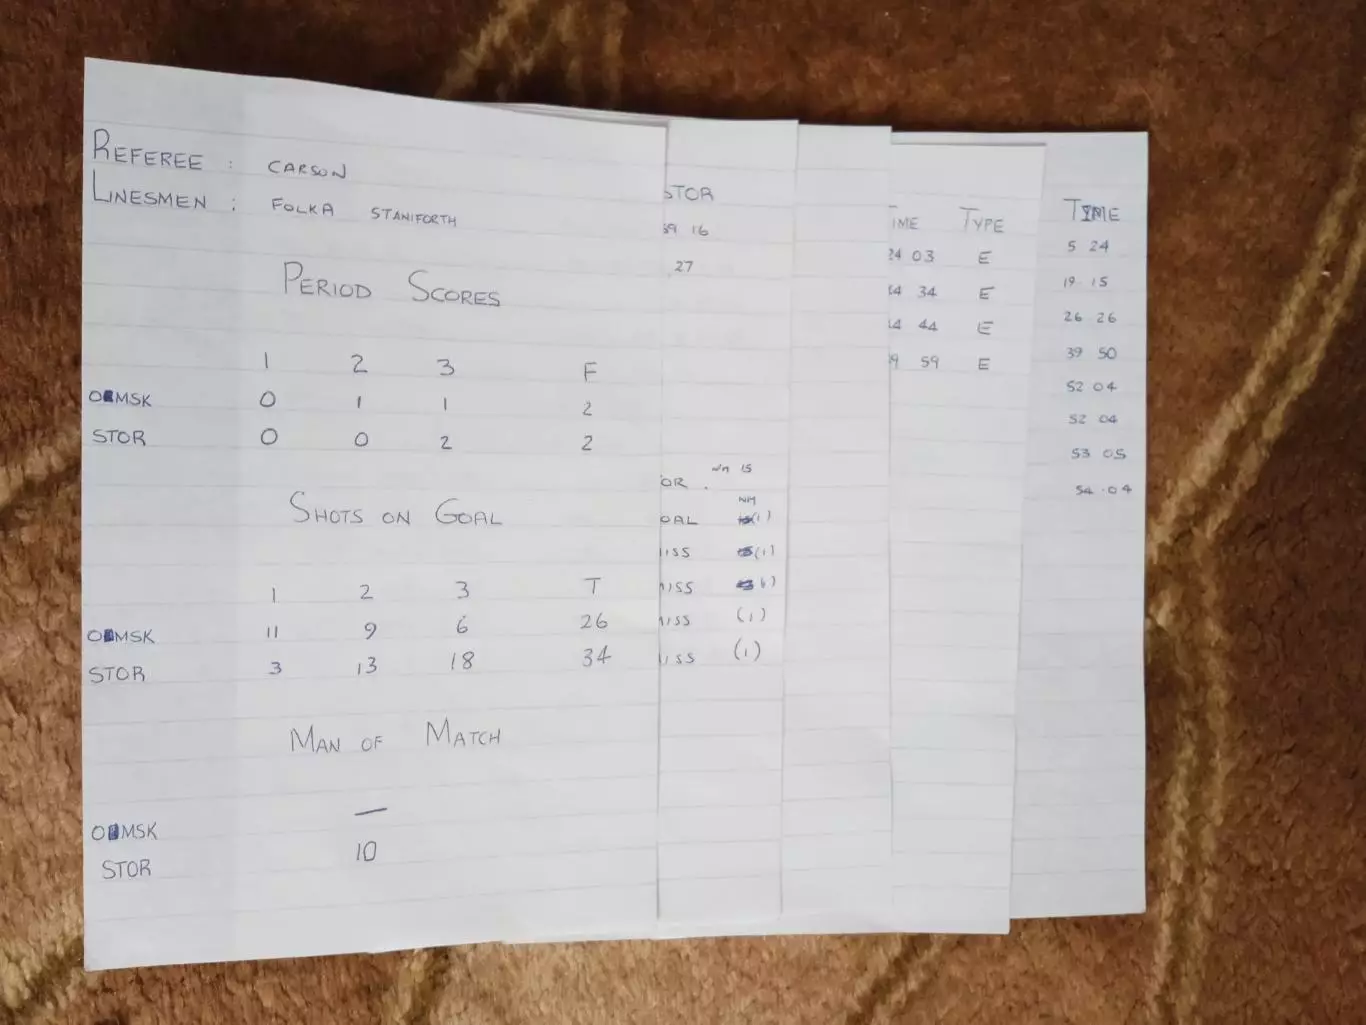 REFEREE : CARSON
LINESMEN : FOLKA STANIFORTH
PERIOD SCORES
1 2 3 F
OMSK 0 1 1 2
STOR 0 0 2 2
SHOTS ON GOAL
1 2 3 T
OMSK 11 9 6 26
STOR 3 13 18 34
MAN OF MATCH
OMSK —
STOR 10
STOR
39 16
27
OR . N/M 15
NM
OAL (1)
ISS (1)
ISS
ISS (1)
ISS (1)
IME TYPE
24 03 E
34 E
44 E
59 E
TIME
5 24
19 15
26 26
39 50
52 04
52 04
53 05
54 04